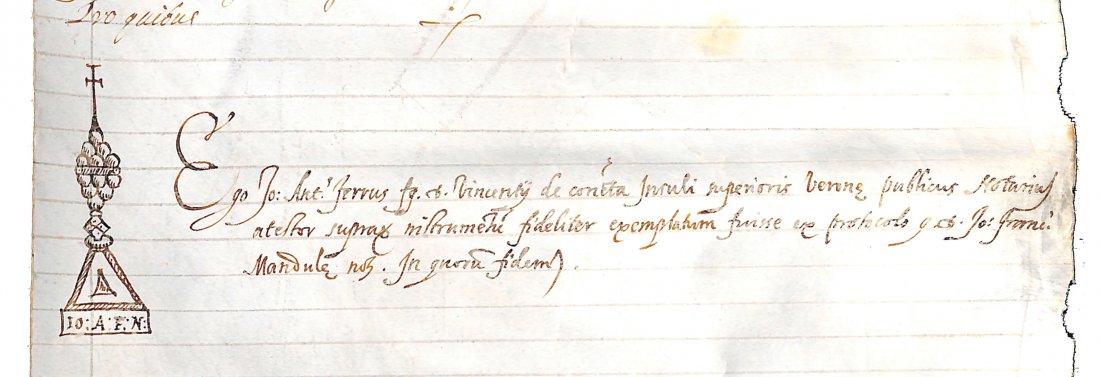 Pro quibus
Ego Jo: Ant.s ferrus fq. d. Vincentij de contrta Insuli superioris Veronę publicus Notarius
atestor suprax instrumetū fideliter exemplatum fuisse ex protocolo q. d. Jo: franci.
Mandulę not. In quorū fidem
IO: A: F: N: